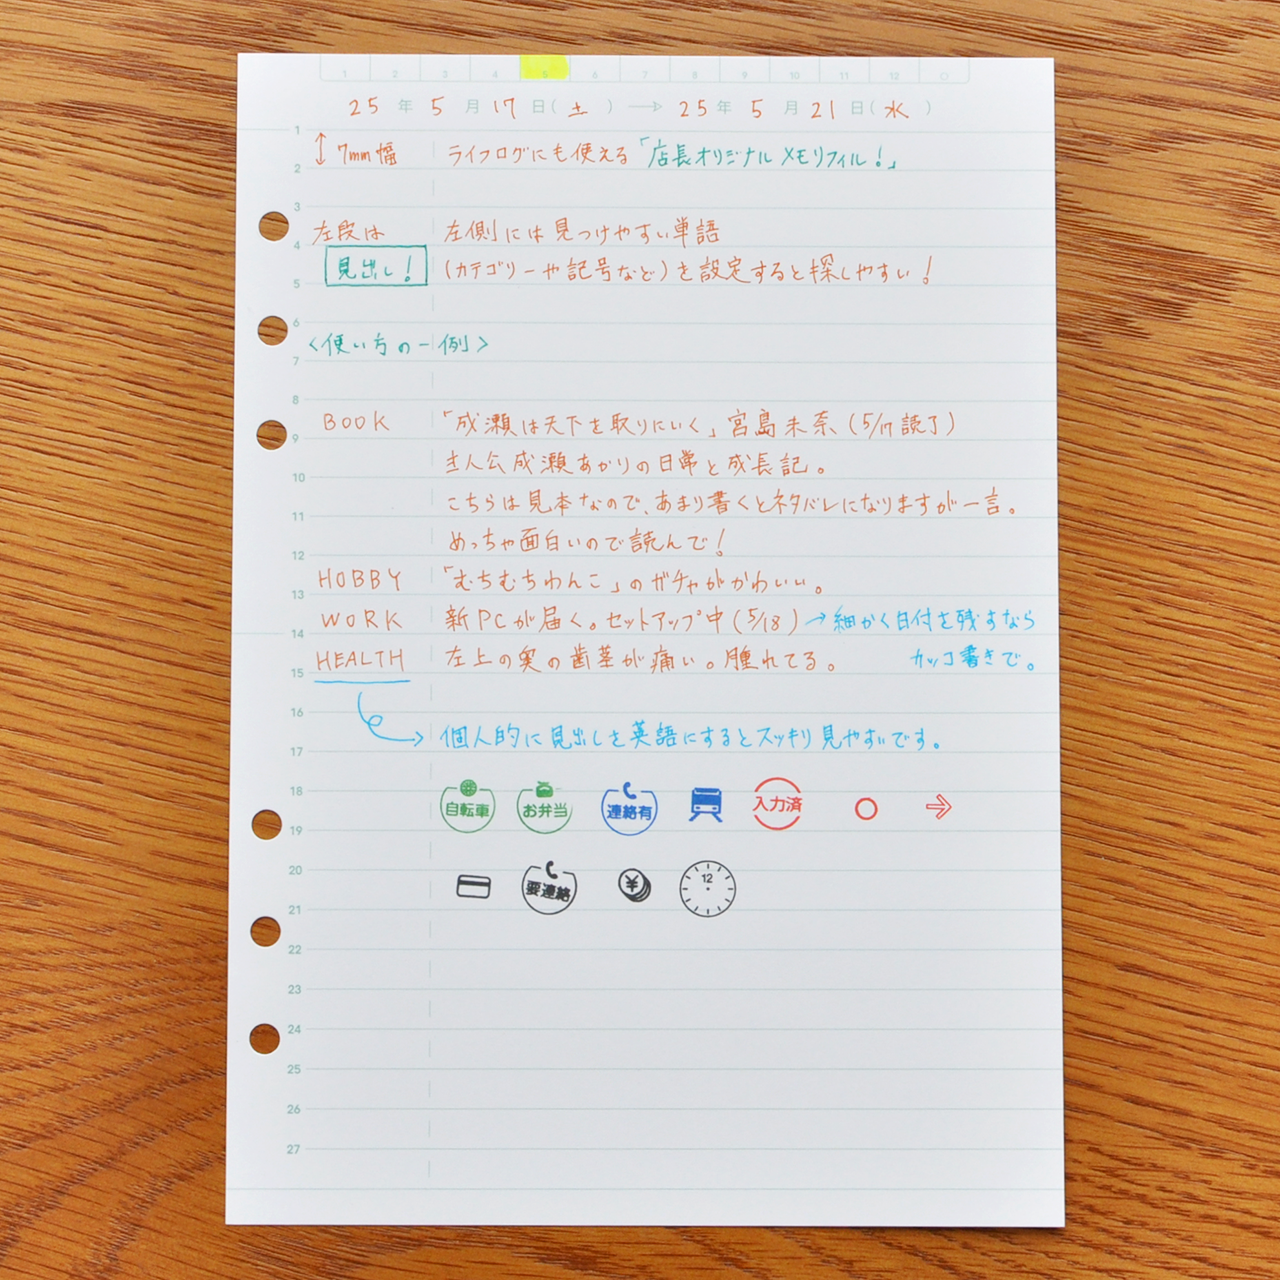 1 2 3 4 5 6 7 8 9 10 11 12 ○
25年 5月 17日(土) → 25年 5月 21日(水)
1
↕ 7mm幅 ライフログにも使える「店長オリジナル メモリフィル!」
2
3
左段は 左側には見つけやすい単語
4
見出し! (カテゴリーや記号など)を設定すると探しやすい!
5
6
<使い方の一例>
7
8
BOOK 「成瀬は天下を取りにいく」宮島未奈(5/17読了)
9
主人公成瀬あかりの日常と成長記。
10
こちらは見本なので、あまり書くとネタバレになりますが一言。
11
めっちゃ面白いので読んで!
12
HOBBY 「むちむちわんこ」のガチャがかわいい。
13
WORK 新PCが届く。セットアップ中(5/18)→細かく日付を残すなら
14
HEALTH 左上の奥の歯茎が痛い。腫れてる。 カッコ書きで。
15
16
→ 個人的に見出しを英語にするとスッキリ見やすいです。
17
18
自転車 お弁当 連絡有 入力済 ○ ⇒
19
20
要連絡 ¥ 12
21
22
23
24
25
26
27